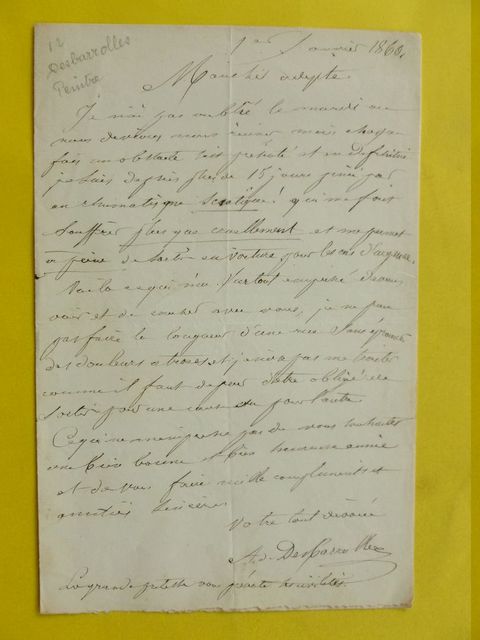 12
Desbarrolles
Peintre
1er Janvier 1860.
Mon cher adepte.
Je n'ai pas oublié le mardi où
nous devions nous réunir mais chaque
fois un obstacle s'est présenté et en définitive
je suis depuis plus de 15 jours pris par
un rhumatisme sciatique! qui me fait
souffrir plus que cruellement et me permet
à peine de sortir en voiture pour les cas d'urgence.
Voilà ce qui m'a surtout empêché d'aller vous
voir et de causer avec vous, je ne puis
pas faire la longueur d'une rue sans éprouver
des douleurs atroces et je n'ose pas me traiter
comme il faut de peur d'être obligé de
sortir pour une cause ou pour l'autre.
Ce qui ne m'empêche pas de vous souhaiter
une bien bonne et bien heureuse année
et de vous faire mille compliments et
amitiés sincères
Votre tout dévoué
Ad. Desbarrolles
La grande vous